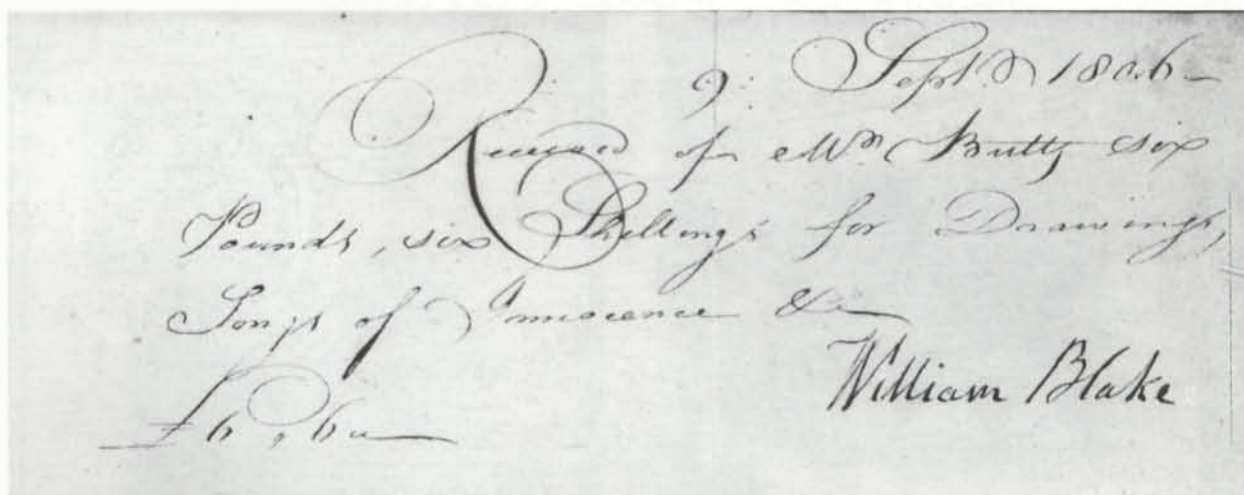 9: Septr 1806
Received of Mr Butts six
Pounds, six Shillings for Drawings,
Songs of Innocence &c
William Blake
£6,,6,,